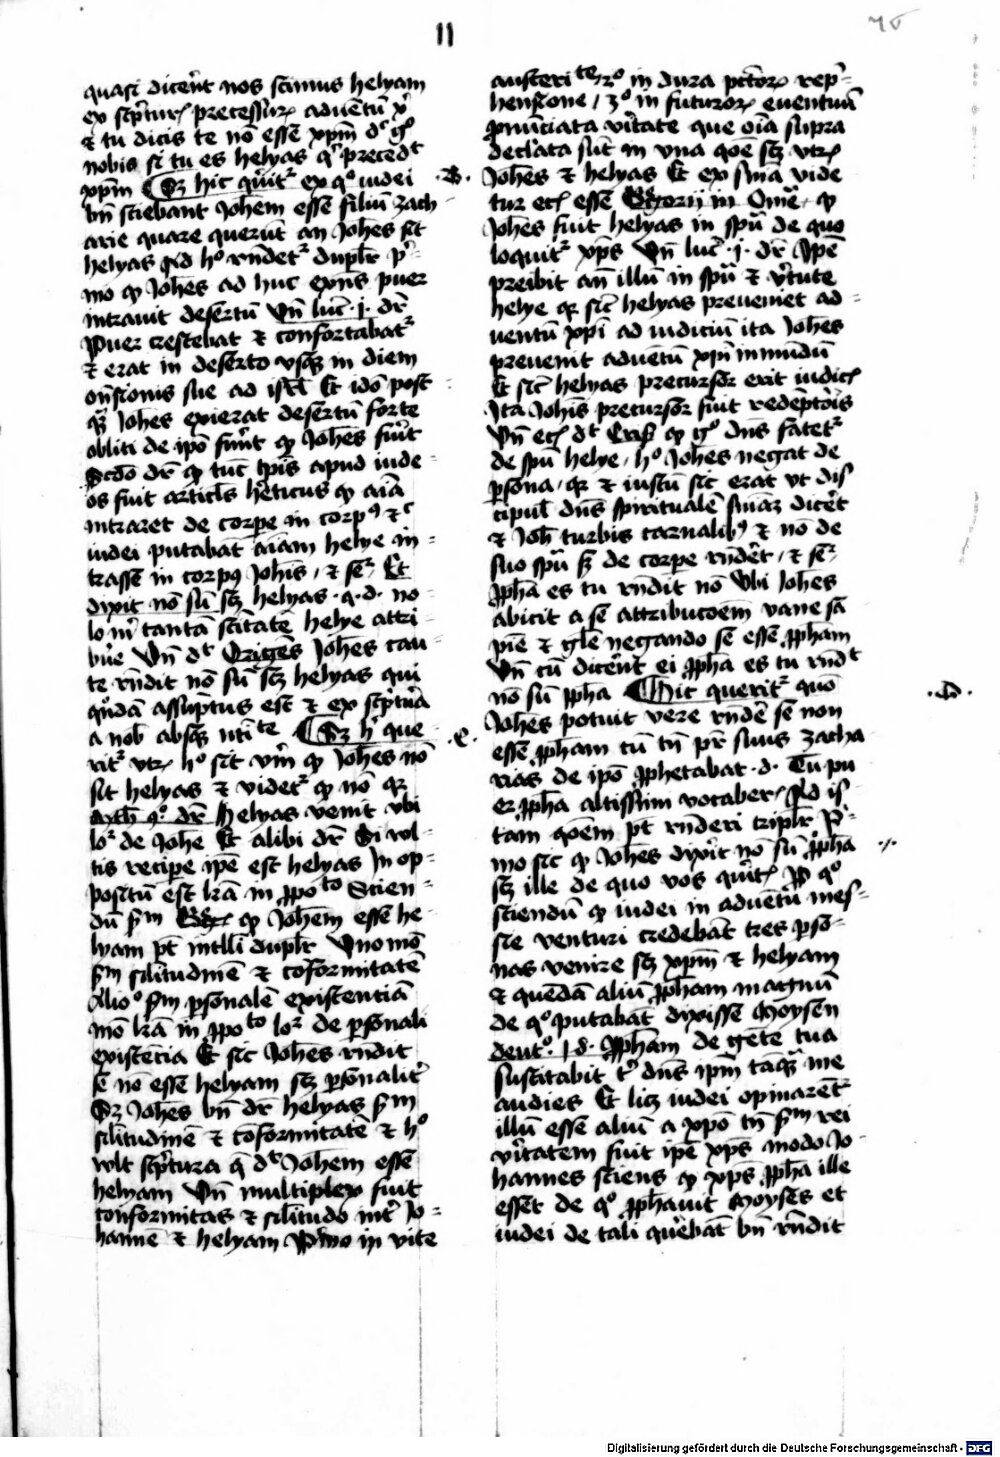 II
quasi dicerent nos scimus helyam
ex scriptura precessurum adventum xpi
et tu dicis te non esse xpm dic ergo
nobis si tu es helyas qui precedet
xpm Sed hic queritur ex quo iudei
.B.
bene sciebant Johem esse filium zach
arie quare querunt an Johes sit
helyas Ad hoc respondetur dupliciter pri
mo quod Johes ad huc existens puer
intravit desertum Unde luc .j. dicitur
Puer crescebat et confortabatur
et erat in deserto usque in diem
ostensionis sue ad isrl Et ideo post
quam Johes exierat desertum forte
obliti de ipso fuerunt quod Johes fuerit
Secundo dicitur quod tunc temporis apud iude
os fuit articulus hereticus quod anima
intraret de corpore in corpus etc
iudei putabant animam helye in
trasse in corpus Johis et sequitur Et
dixit non sum scilicet helyas .q.d. no
lo mihi tantam sanctitatem helye attri
buere Unde dicit Origenes Johes cau
te respondit non sum scilicet helyas qui
quondam assumptus est et ex scriptura
a nobis absque
Sed hic que
.C.
ritur utrum hoc sit verum quod Johes non
sit helyas et videtur quod non quia
dicitur Helyas venit ubi
loquitur de Johe Et alibi dicitur Si vul
tis recipere ipse est helyas In op
positum est littera in proposito Scien
dum secundum quod Johem esse he
lyam potest intelligi dupliciter Uno modo
secundum similitudinem et conformitatem
Alio modo secundum personalem existentiam
modo littera in proposito loquitur de personali
existencia Et sic Johes respondit
se non esse helyam scilicet personaliter
Sed Johes bene dicitur helyas secundum
similitudinem et conformitatem et hoc
vult scriptura que dicit Johem esse
helyam Unde multiplex fuit
conformitas et similitudo inter Jo
hannem et helyam Primo in vite
austeritate 2o in dura peccatorum repre
hensione / 3o in futurorum eventuum
pronunciata veritate que omnia supra
declarata sunt in una questione scilicet utrum
Johes et helyas Et ex summa vide
tur etiam esse Gregorii in Omelia quod
Johes fuit helyas in spiritu de quo
loquitur xps Unde luc .j. dicitur Ipse
preibit ante illum in spiritu et virtute
helye quia sicut helyas preveniet ad
ventum xpi ad iudicium ita Johes
prevenit adventum xpi in mundum
Et sicut helyas precursor erit iudicis
Ita Johes precursor fuit redemptoris
Unde etiam dicit quod ergo dominus fatetur
de spiritu helye / hoc Johes negat de
persona / quia et iustum sic erat ut dis
cipulis dominus spiritualem summam diceret
et Johes turbis carnalibus et non de
suo spiritu sed de corpore responderet / et sequitur
propheta es tu respondit non Ubi Johes
abicit a se attribucionem vane sa
pie et glorie negando se esse propham
Unde cum dicerent ei propha es tu respondet
non sum propha Hic queritur quomodo
.D.
Johes potuit vere respondere se non
esse propham cum tamen pater suus zacha
rias de ipso prophetabat .d. Tu pu
er propha altissimi vocaberis Ad is
tam questionem potest responderi tripliciter Pri
mo sic quod Johes dixerit non sum propha
scilicet ille de quo vos queritis Pro quo
sciendum quod iudei in adventum mes
sie venturi credebant tres perso
nas venire scilicet xpm et helyam
et quendam alium propham magnum
de quo putabant dixisse Moysen
deut. 18. propham de gente tua
suscitabit tibi dominus ipsum tanquam me
audies Et licet iudei opinarent
illum esse alium a xpo tamen secundum rei
veritatem fuit ipse xps modo Jo
hannes sciens quod xps propha ille
esset de quo prophavit Moyses et
iudei de tali querebant bene respondit
Digitalisierung gefördert durch die Deutsche Forschungsgemeinschaft - DFG